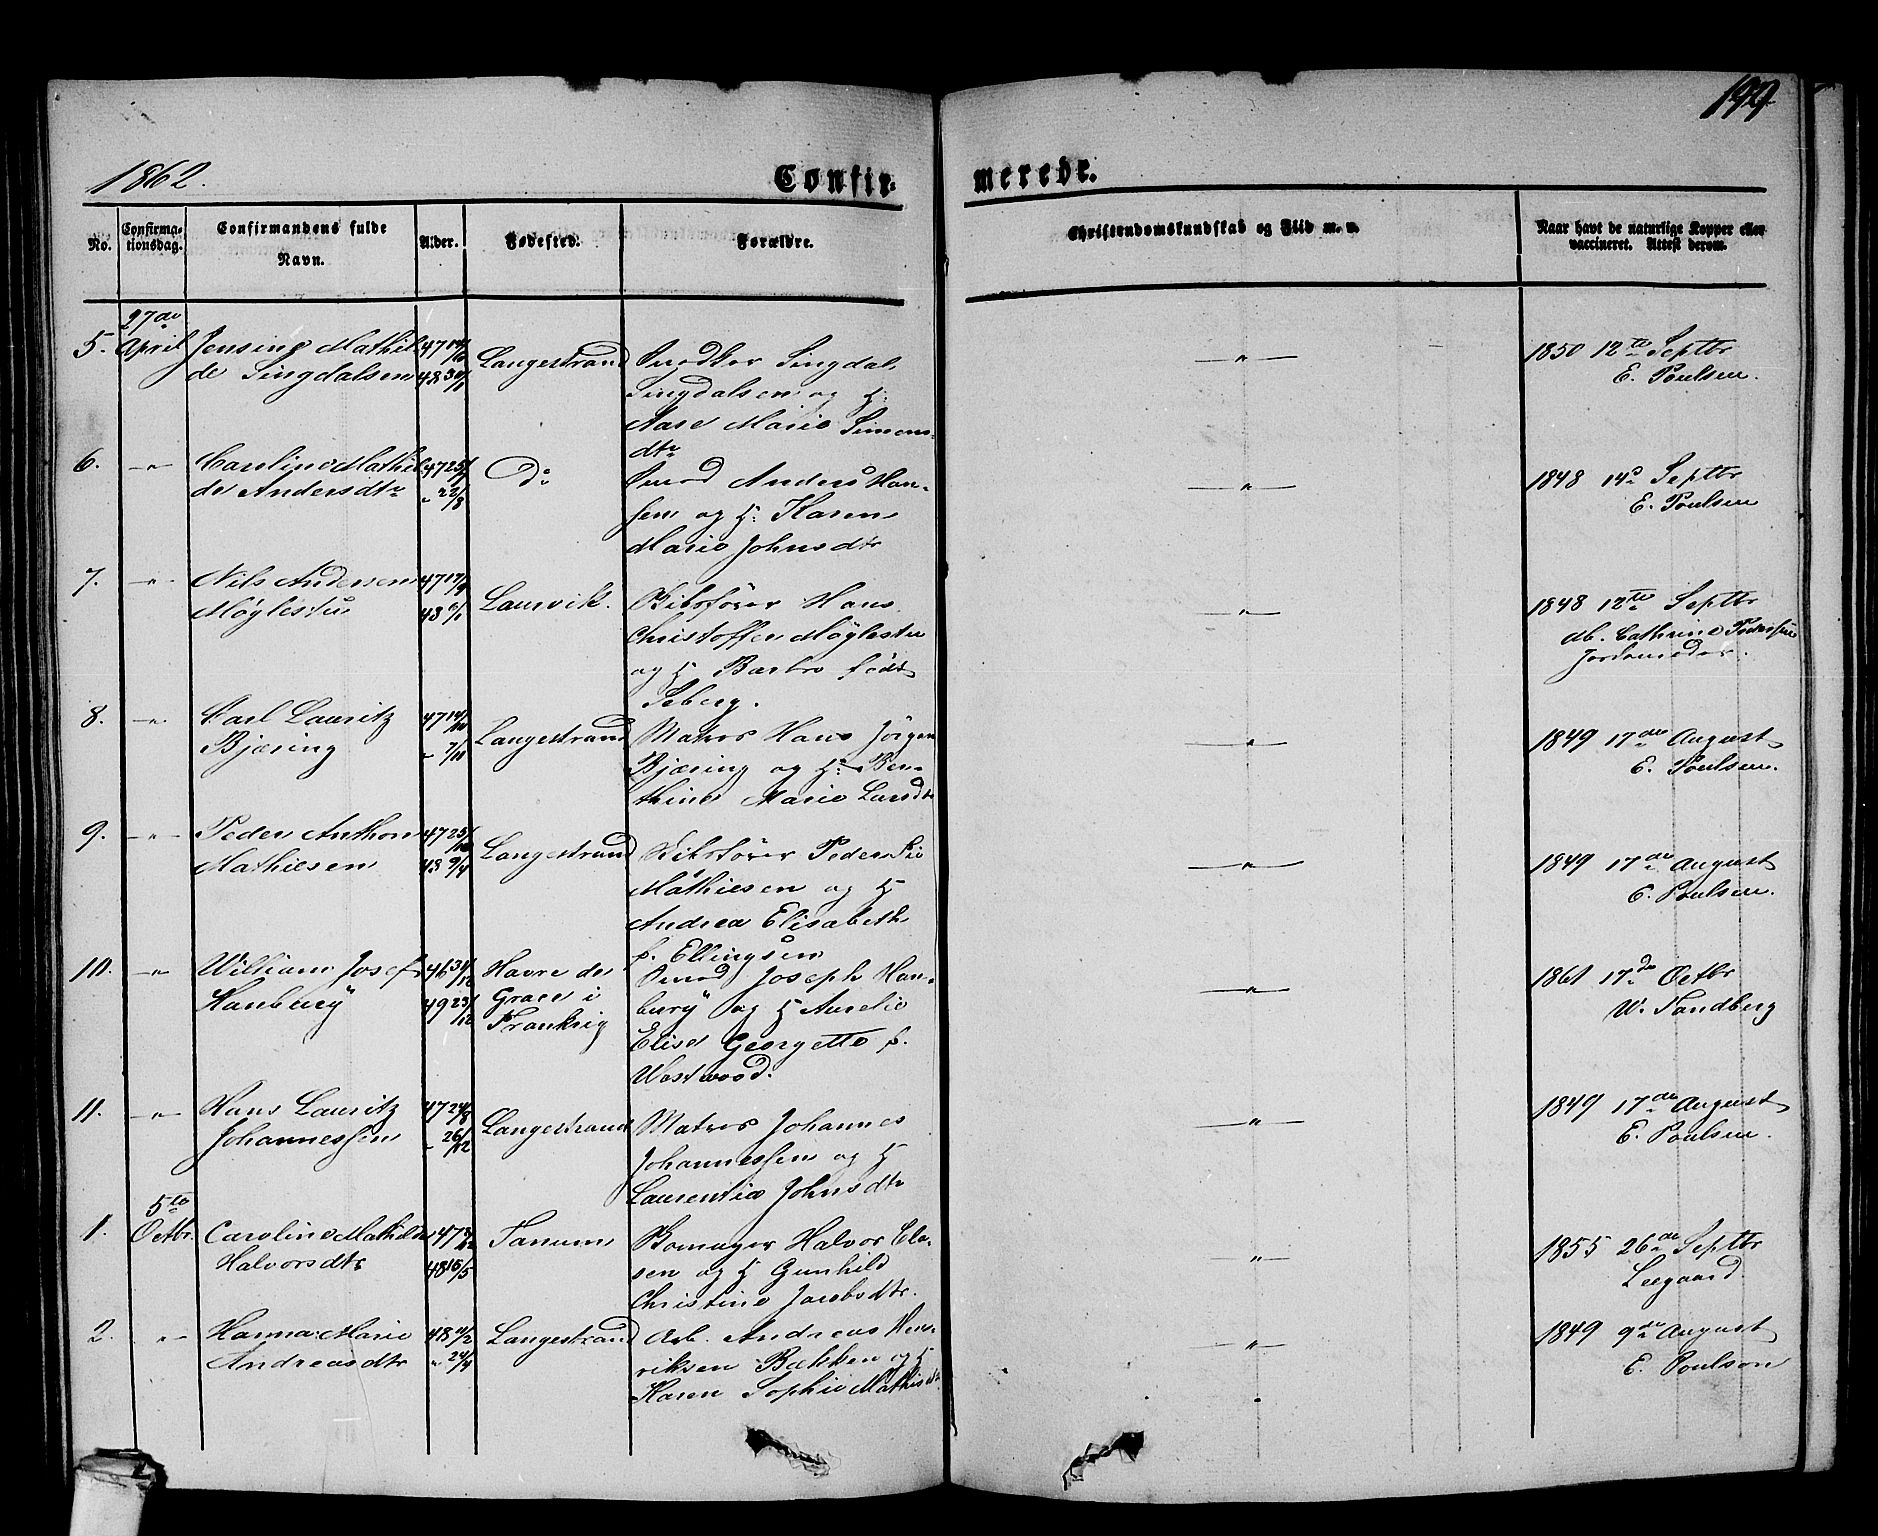 199
1862.
Confir-
merede.
No.
Confirma-
tionsdag.
Confirmandens fulde
Navn.
Alder.
Fødested.
Forældre.
Christendomskundskab og Flid m. v.
Naar havt de naturlige Kopper eller
vaccineret. Attest derom.
27de
5. April Jensine Mathil
de Singdalsen
Langestrand
Singdal
Singdalsen og H:
Aase Marie Simons
dtr
—"—
1850 12te Septbr
E. Poulsen.
6. —"— Caroline Mathil
de Andersdtr
47 25/
" 22/8
Do
Smed Anders Han-
sen og H: Karen
Marie Johnsdtr
—"—
1848 14d Septbr
E. Poulsen
7. —"— Nils Andersen
Møglestu
Laurvik.
Hans
Christoffer Møglestu
og H Barbro født
Seberg.
—"—
1848 12te Septbr
Cathrine Pedersen
Jordemoder.
8. —"— Carl Lauritz
Bjæring
47 14/10
" 7/11
Langestrand
Matros Hans Jørgen
Bjæring og H: Ben-
thine Marie Larsdtr
—"—
1849 17de August
E. Poulsen.
9. —"— Peder Anthon
Mathiesen
47 25/10
48 9/4
Langestrand
Peder
Mathiesen og H
Andrea Elisabeth
f. Ellingsen
—"—
1849 17de August
E. Poulsen.
10. —"— William Josef
Hanbury
46 31/12
49 23/12
Havre de
Grace i
Frankrig
Smed Joseph Han-
bury og H Aurelie
Elise Georgette f.
Westwood.
—"—
1861 17de Octbr
W. Sandberg
11. —"— Hans Lauritz
Johannessen
47 24/8
" 26/12
Langestrand
Matros Johannes
Johannessen og H
Laurentia Johnsdtr
—"—
1849 17de August
E. Poulsen.
5te
1. Octbr. Caroline Mathilde
Halvorsdtr
48 16/5
Tanum
Halvor Ole-
sen og H Gunhild
Christine Jacobsdtr.
"—
1855 26de Septbr
Leegaard.
2. "— Hanna Marie
Andreasdtr
" 24/4
Langestrand
Arb. Andreas Hen-
riksen Bækken og H
Karen Sophie Mathisdtr
—"—
1849 9de August
E. Poulson